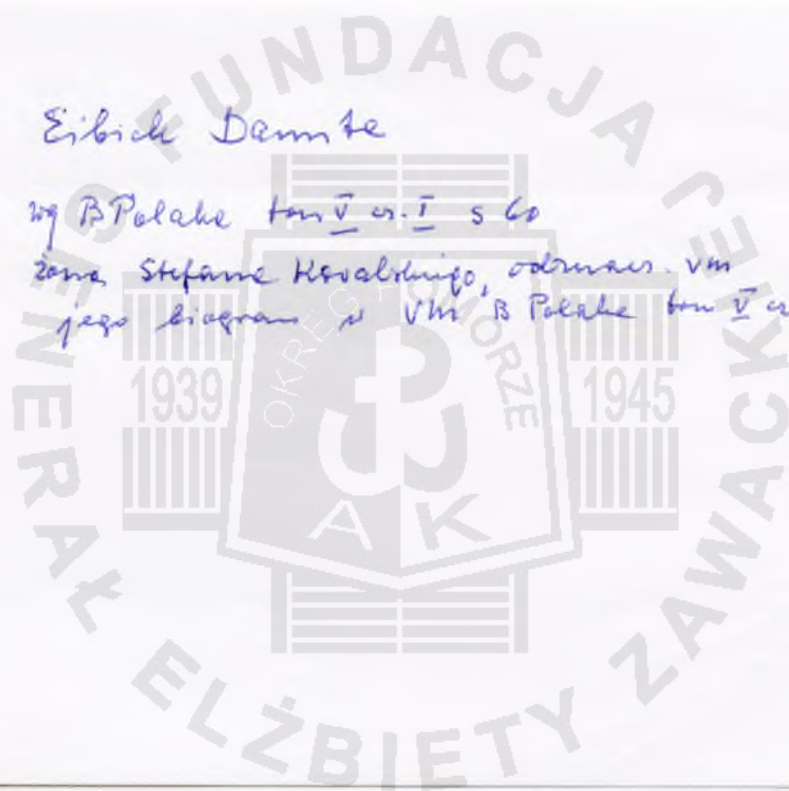 Eibich Danuta
wg B Polaka tom V cz. I s 60
żona Stefana Kowalskiego, odznacz. VM
jego biogram w VM B Polaka tom V cz
FUNDACJA GENERAŁ ELŻBIETY ZAWACKIEJ
OKRĘG POMORZE
1939 1945
AK